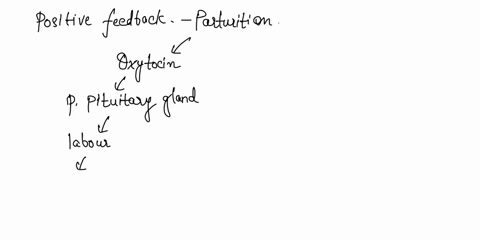 Positive feedback. - Parturition.
Oxytocin
P. Pituitary gland
labour